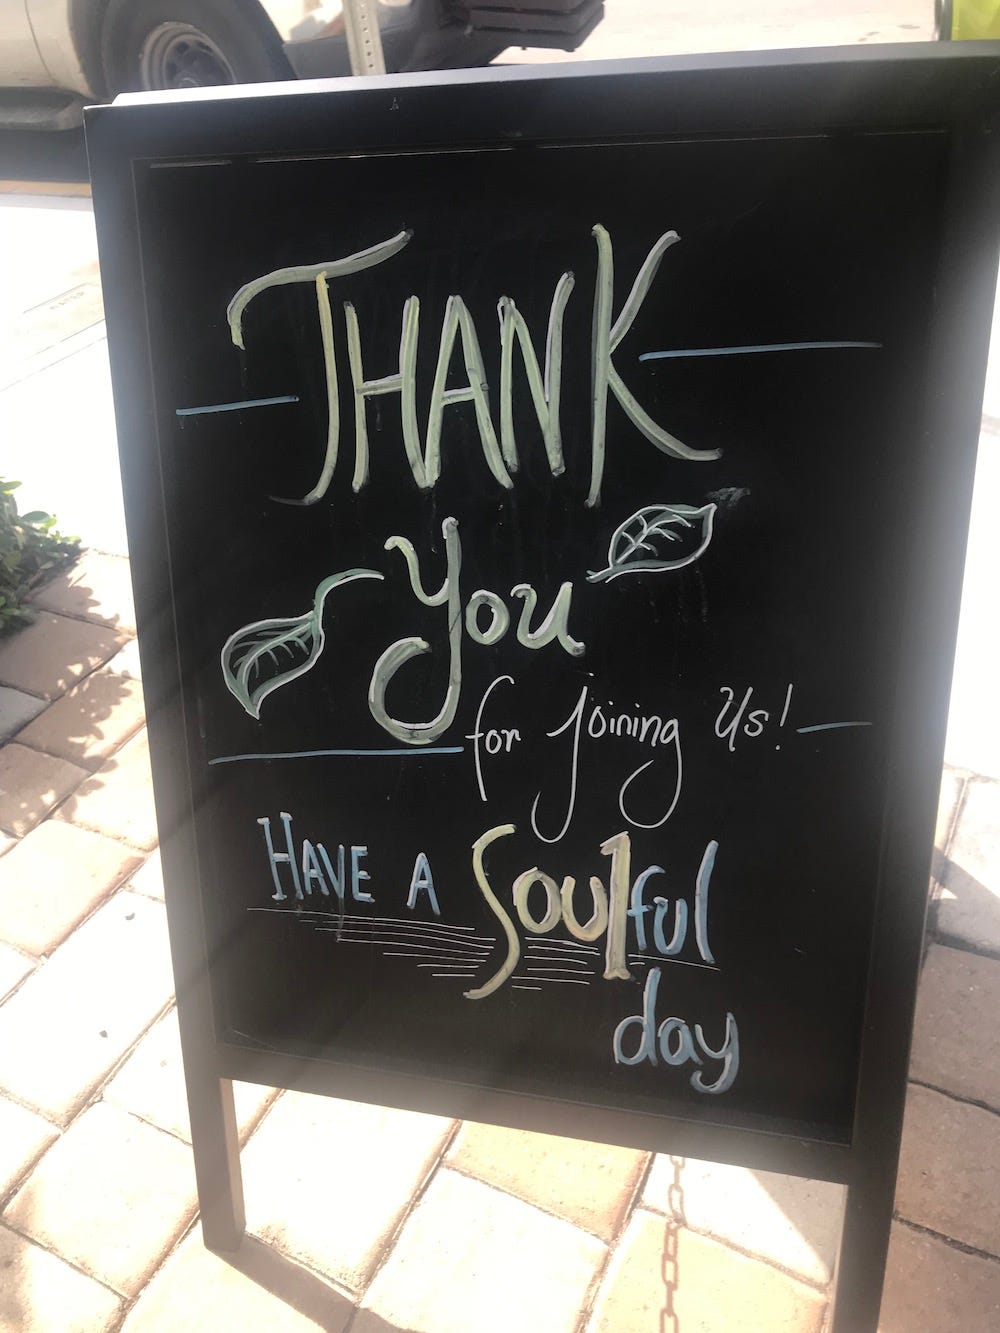 THANK
You
for joining Us!
HAVE A Soulful
day